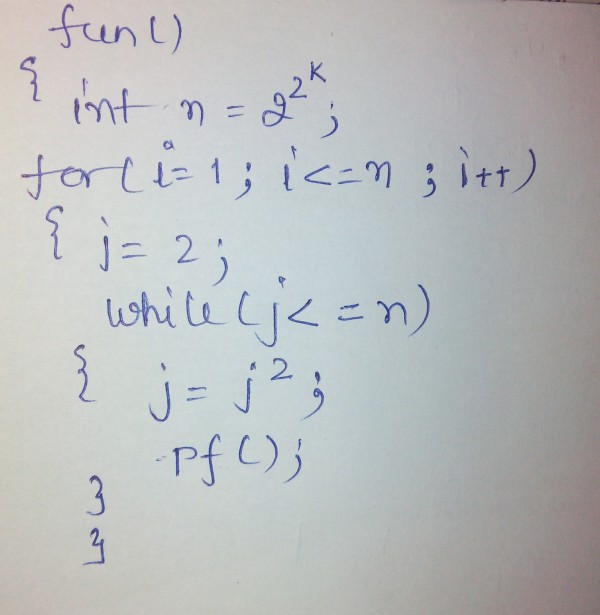 fun()
{ int n = 2^2^K;
for(i=1; i<=n; i++)
{ j= 2;
while(j<=n)
{ j= j^2;
pf();
}
}